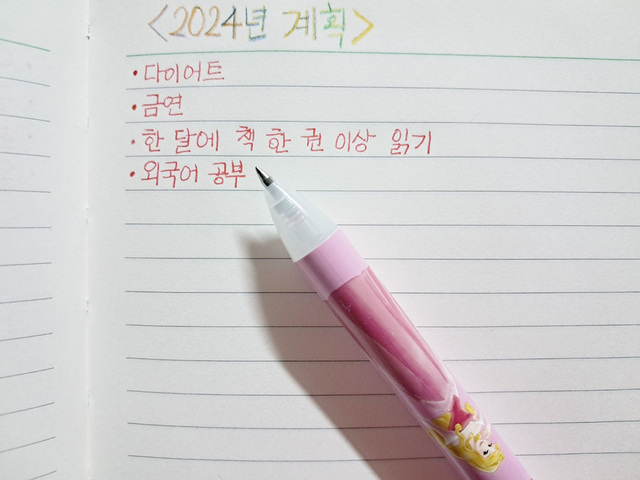 <2024년 계획>
• 다이어트
• 금연
• 한 달에 책 한 권 이상 읽기
• 외국어 공부